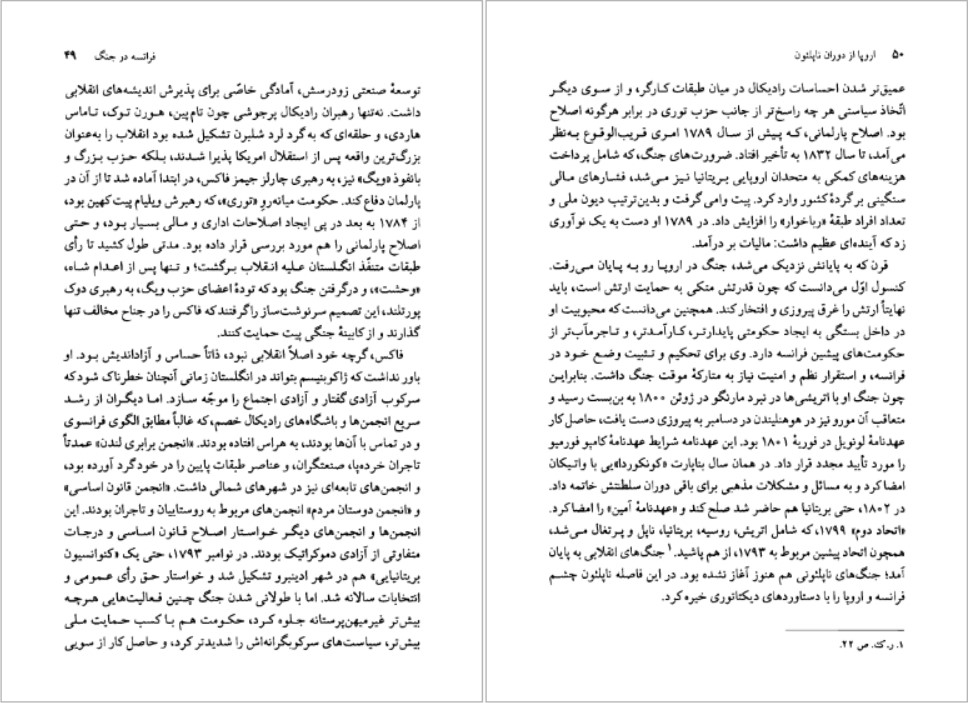 فرانسه در جنگ ۴۹
توسعهٔ صنعتی زودرسش، آمادگی خاصّی برای پذیرش اندیشه‌های انقلابی
داشت. نه‌تنها رهبران رادیکال پرجوشی چون تام‌پین، هورن توک، تاماس
هاردی، و حلقه‌ای که به گرد لرد شلبرن تشکیل شده بود انقلاب را به‌عنوان
بزرگ‌ترین واقعه پس از استقلال امریکا پذیرا شدند، بلکه حزب بزرگ و
بانفوذ «ویگ» نیز، به رهبری چارلز جیمز فاکس، در ابتدا آماده شد تا از آن در
پارلمان دفاع کند. حکومت میانه‌روِ «توری»، که رهبرش ویلیام پیت کهین بود،
از ۱۷۸۴ به بعد در پی ایجاد اصلاحات اداری و مالی بسیار بود، و حتی
اصلاح پارلمانی را هم مورد بررسی قرار داده بود. مدتی طول کشید تا رأی
طبقات متنفّذ انگلستان علیه انقلاب برگشت؛ و تنها پس از اعدام شاه،
«وحشت»، و درگرفتن جنگ بود که تودهٔ اعضای حزب ویگ، به رهبری دوک
پورتلند، این تصمیم سرنوشت‌ساز را گرفتند که فاکس را در جناح مخالف تنها
گذارند و از کابینهٔ جنگی پیت حمایت کنند.
فاکس، گرچه خود اصلاً انقلابی نبود، ذاتاً حساس و آزاداندیش بود. او
باور نداشت که ژاکوبنیسم بتواند در انگلستان زمانی آنچنان خطرناک شود که
سرکوب آزادی گفتار و آزادی اجتماع را موجّه سازد. اما دیگران از رشد
سریع انجمن‌ها و باشگاه‌های رادیکال خصم، که غالباً مطابق الگوی فرانسوی
و در تماس با آن‌ها بودند، به هراس افتاده بودند. «انجمن برابری لندن» عمدتاً
تاجران خرده‌پا، صنعتگران، و عناصر طبقات پایین را در خود گرد آورده بود،
و انجمن‌های تابعه‌ای نیز در شهرهای شمالی داشت. «انجمن قانون اساسی»
و «انجمن دوستان مردم» انجمن‌های مربوط به روستاییان و تاجران بودند. این
انجمن‌ها و انجمن‌های دیگر خواستار اصلاح قانون اساسی و درجات
متفاوتی از آزادی دموکراتیک بودند. در نوامبر ۱۷۹۳، حتی یک «کنوانسیون
بریتانیایی» هم در شهر ادینبرو تشکیل شد و خواستار حق رأی عمومی و
انتخابات سالانه شد. اما با طولانی شدن جنگ چنین فعالیت‌هایی هرچه
بیش‌تر غیرمیهن‌پرستانه جلوه کرد، حکومت هم با کسب حمایت ملی
بیش‌تر، سیاست‌های سرکوبگرانه‌اش را شدیدتر کرد، و حاصل کار از سویی
۵۰ اروپا از دوران ناپلئون
عمیق‌تر شدن احساسات رادیکال در میان طبقات کارگر، و از سوی دیگر
اتّخاذ سیاستی هر چه راسخ‌تر از جانب حزب توری در برابر هرگونه اصلاح
بود. اصلاح پارلمانی، که پیش از سال ۱۷۸۹ امری قریب‌الوقوع به‌نظر
می‌آمد، تا سال ۱۸۳۲ به تأخیر افتاد. ضرورت‌های جنگ، که شامل پرداخت
هزینه‌های کمکی به متحدان اروپایی بریتانیا نیز می‌شد، فشارهای مالی
سنگینی بر گردهٔ کشور وارد کرد. پیت وامی‌گرفت و بدین‌ترتیب دیون ملی و
تعداد افراد طبقهٔ «رباخوار» را افزایش داد. در ۱۷۸۹ او دست به یک نوآوری
زد که آینده‌ای عظیم داشت: مالیات بر درآمد.
قرن که به پایانش نزدیک می‌شد، جنگ در اروپا رو به پایان می‌رفت.
کنسول اوّل می‌دانست که چون قدرتش متکی به حمایت ارتش است، باید
نهایتاً ارتش را غرق پیروزی و افتخار کند. همچنین می‌دانست که محبوبیت او
در داخل بستگی به ایجاد حکومتی پایدارتر، کارآمدتر، و تاجرمآب‌تر از
حکومت‌های پیشین فرانسه دارد. وی برای تحکیم و تثبیت وضع خود در
فرانسه، و استقرار نظم و امنیت نیاز به متارکهٔ موقت جنگ داشت. بنابراین
چون جنگ او با اتریشی‌ها در نبرد مارنگو در ژوئن ۱۸۰۰ به بن‌بست رسید و
متعاقب آن مورو نیز در هوهنلیندن در دسامبر به پیروزی دست یافت، حاصل کار
عهدنامهٔ لونویل در فوریهٔ ۱۸۰۱ بود. این عهدنامه شرایط عهدنامهٔ کامپو فورمیو
را مورد تأیید مجدد قرار داد. در همان سال بناپارت «کونکوردا»یی با واتیکان
امضا کرد و به مسائل و مشکلات مذهبی برای باقی دوران سلطنتش خاتمه داد.
در ۱۸۰۲، حتی بریتانیا هم حاضر شد صلح کند و «عهدنامهٔ آمین» را امضا کرد.
«اتحاد دوم» ۱۷۹۹، که شامل اتریش، روسیه، بریتانیا، ناپل و پرتغال می‌شد،
همچون اتحاد پیشین مربوط به ۱۷۹۳، از هم پاشید.۱ جنگ‌های انقلابی به پایان
آمد؛ جنگ‌های ناپلئونی هم هنوز آغاز نشده بود. در این فاصله ناپلئون چشم
فرانسه و اروپا را با دستاوردهای دیکتاتوری خیره کرد.
۱. ر.ک. ص ۲۲.